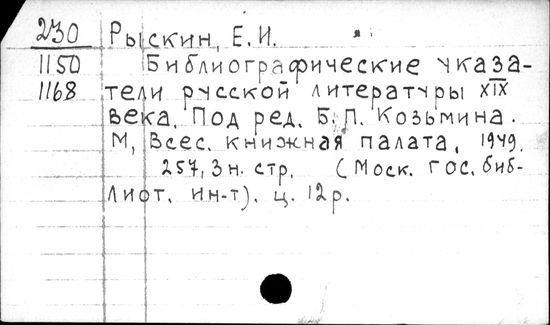 230 Рыскин, Е.И.
1150 Библиографические указа-
1168 тели русской литературы XIX
века. Под ред. Б.П. Козьмина.
М, Всес. книжная палата, 1949.
257, 3н. стр. (Моск. гос. биб-
лиот. ин-т). ц. 12р.